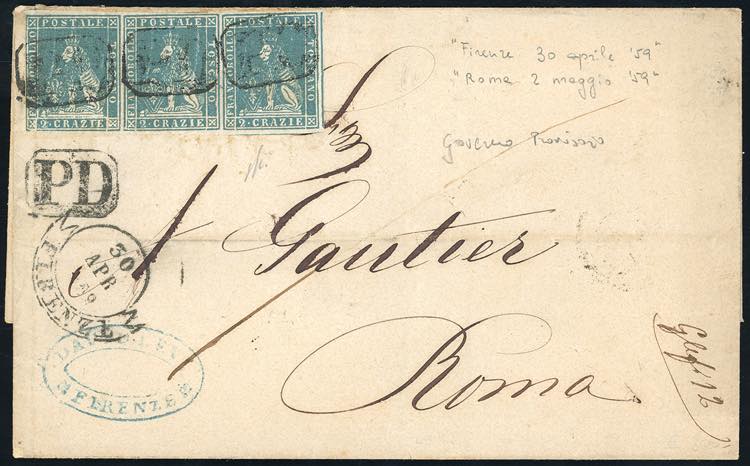 POSTALE POSTALE POSTALE
FRANCOBOLLO TOSCANO FRANCOBOLLO TOSCANO FRANCOBOLLO TOSCANO
2·CRAZIE 2·CRAZIE 2·CRAZIE
PD PD PD
"Firenze 30 aprile '59"
"Roma 2 maggio '59"
Governo Provvisorio
PD
FIRENZE
30
APR
59
Gautier
Roma
FIRENZE